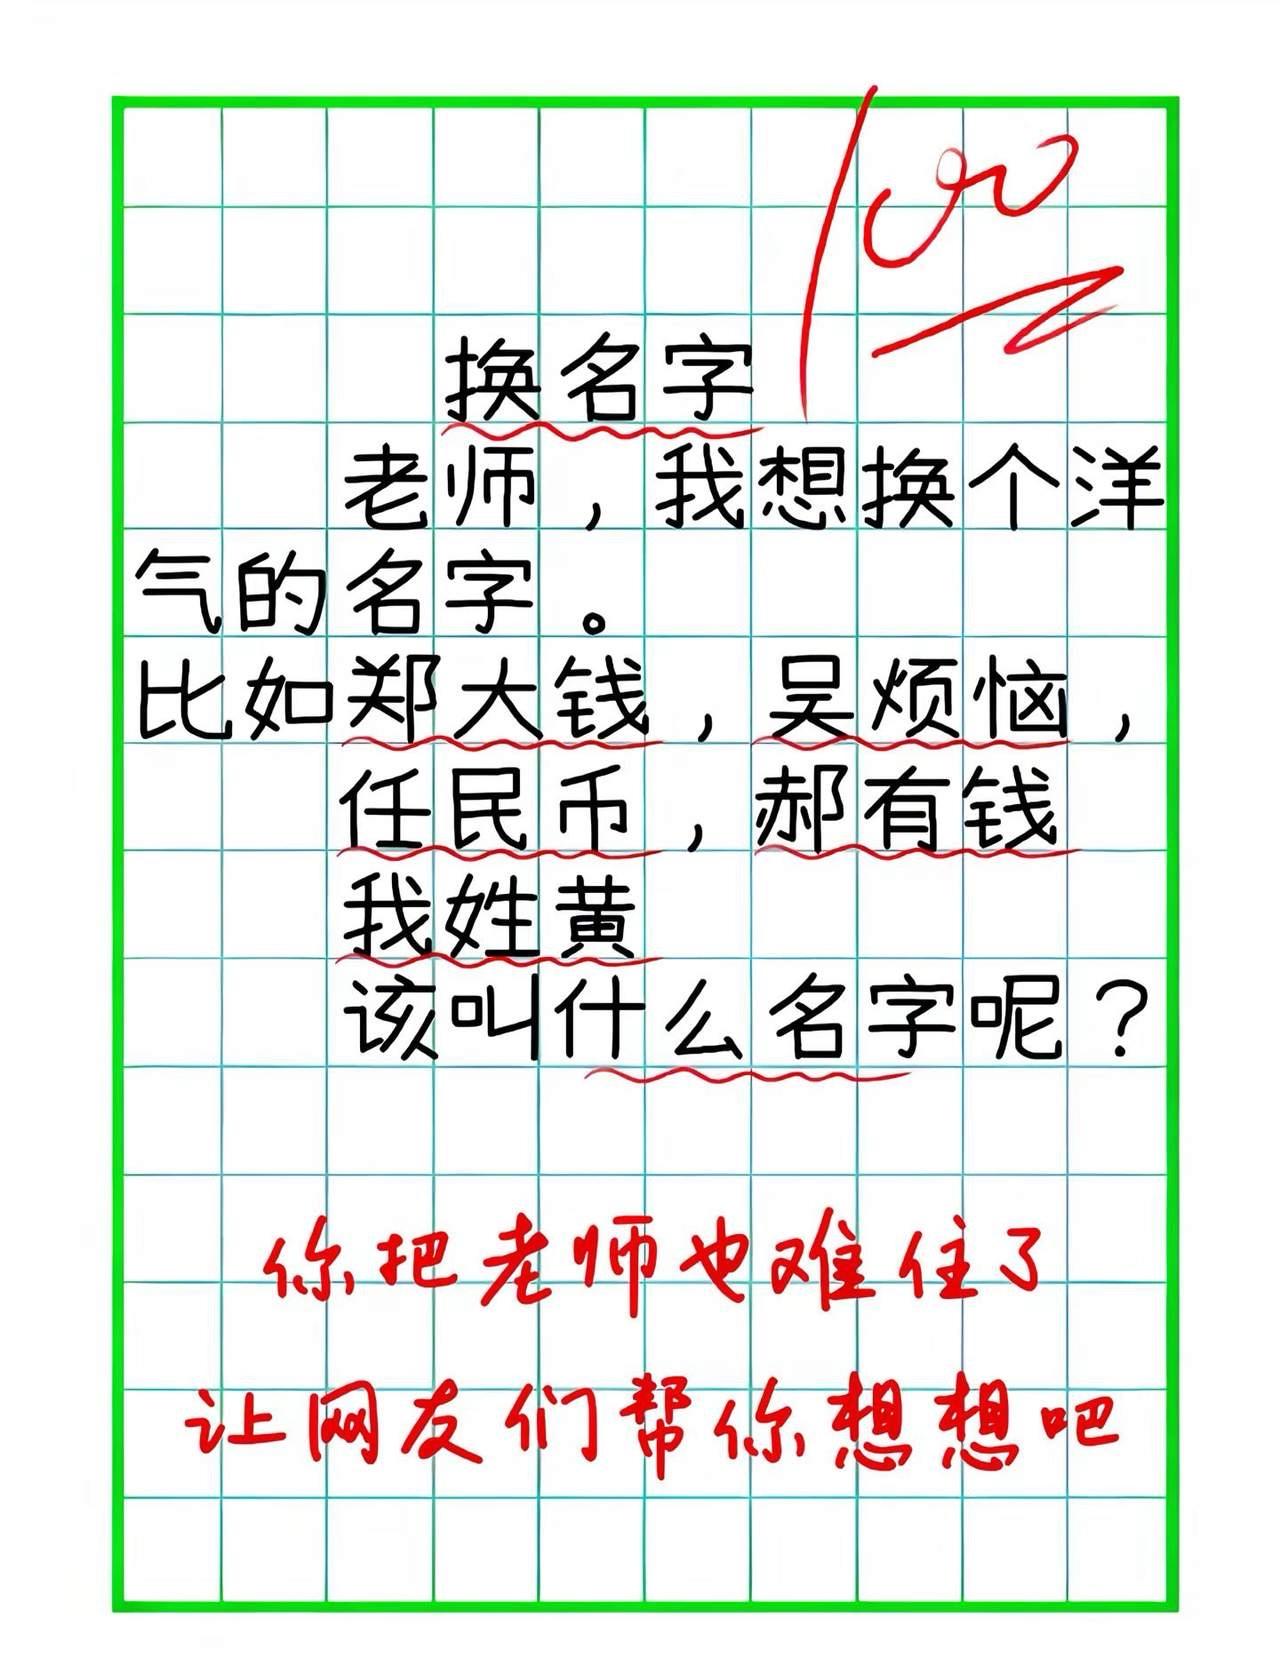 100
换名字
老师，我想换个洋
气的名字。
比如郑大钱，吴烦恼，
任民币，郝有钱
我姓黄
该叫什么名字呢？
你把老师也难住了
让网友们帮你想想吧